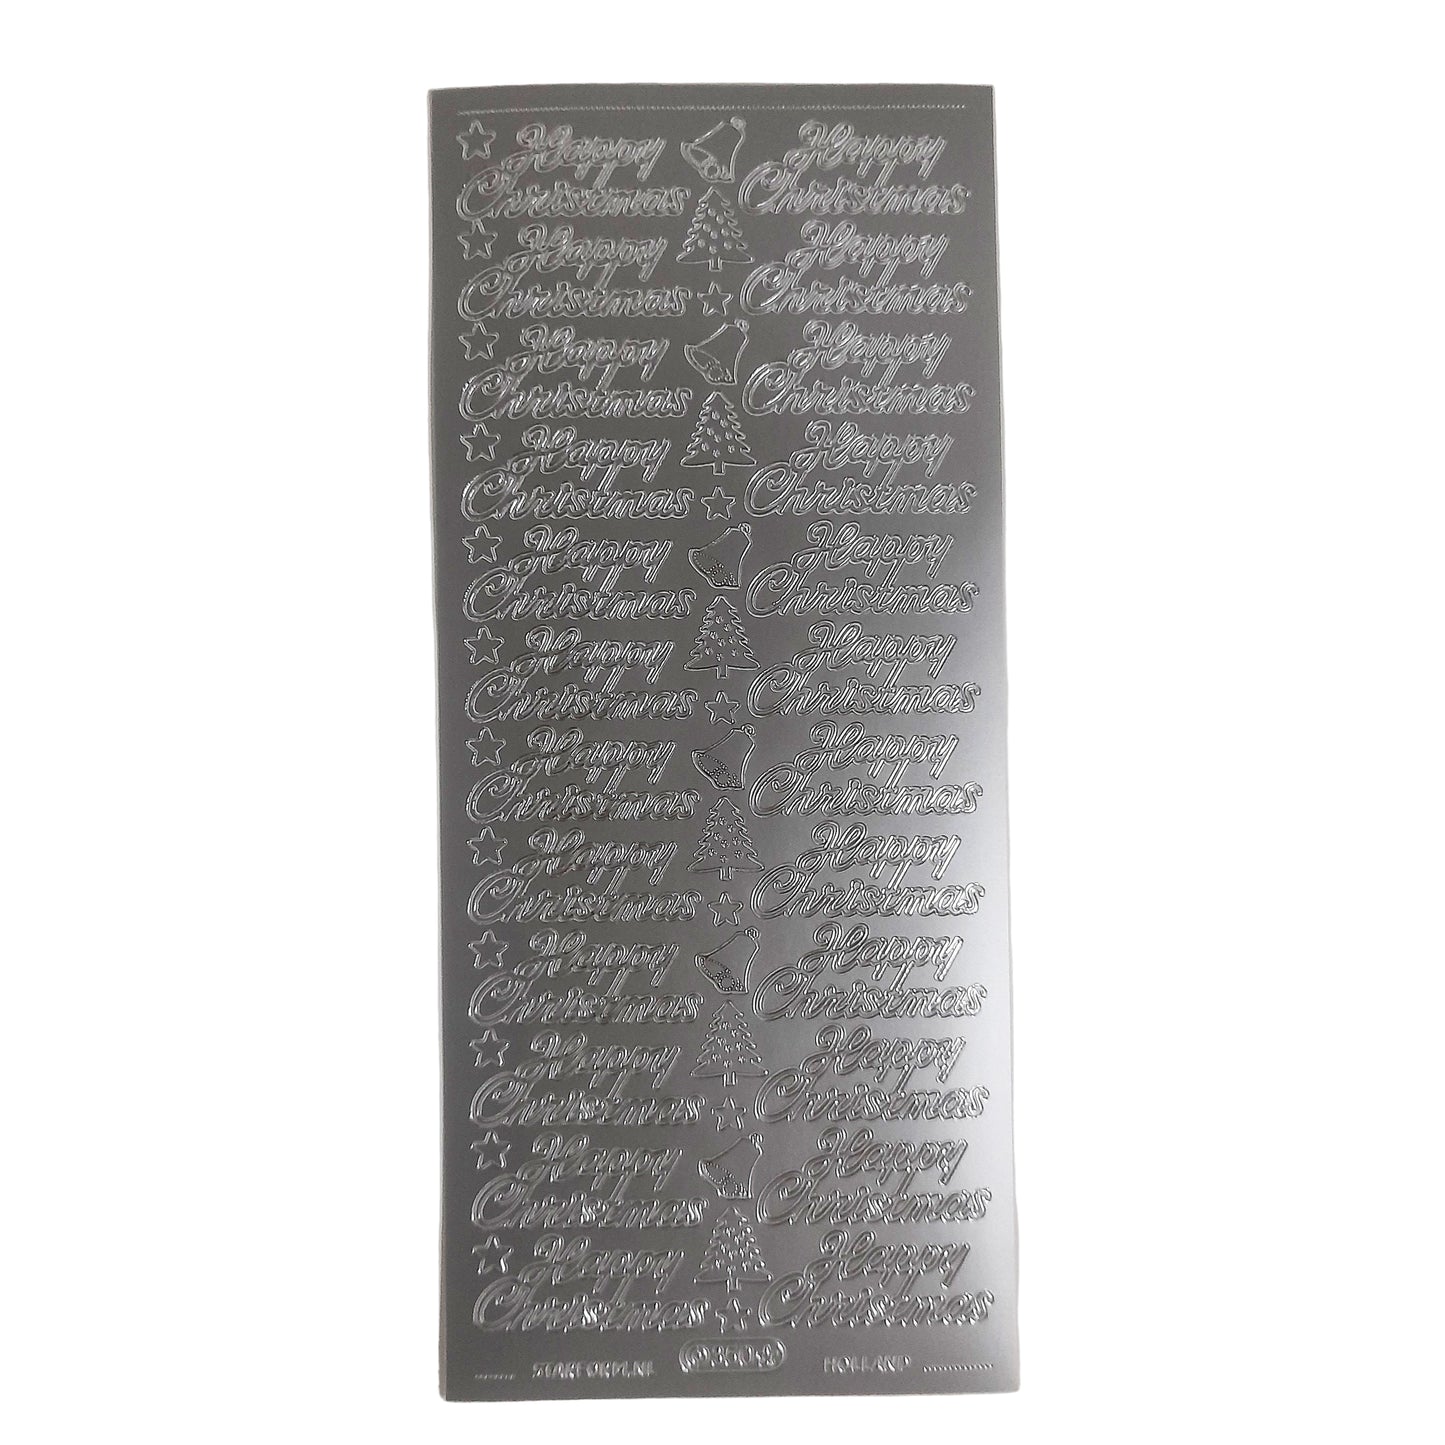 Happy Happy
Christmas Christmas
Happy Happy
Christmas Christmas
Happy Happy
Christmas Christmas
Happy Happy
Christmas Christmas
Happy Happy
Christmas Christmas
Happy Happy
Christmas Christmas
Happy Happy
Christmas Christmas
Happy Happy
Christmas Christmas
Happy Happy
Christmas Christmas
Happy Happy
Christmas Christmas
Happy Happy
Christmas Christmas
Happy Happy
Christmas Christmas
STARFORM.NL HOLLAND